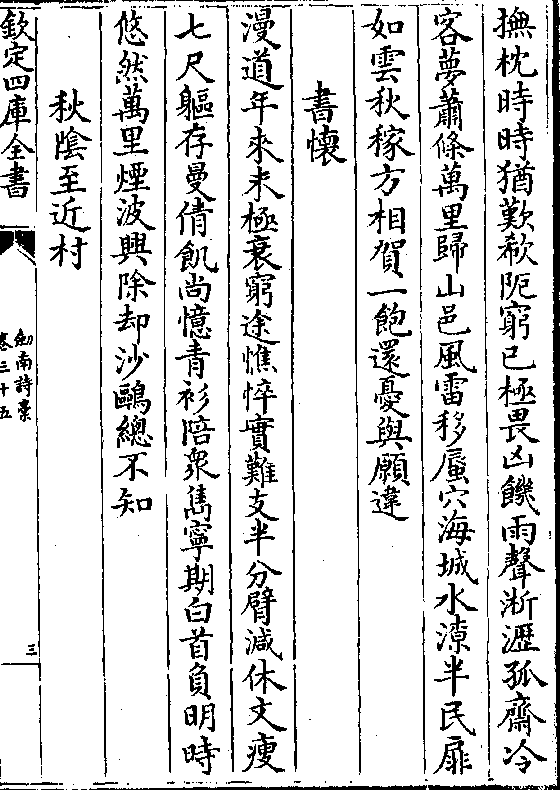 撫枕時時猶歎欷阨窮已極畏凶饑雨聲淅瀝孤齋冷
客夢蕭條萬里歸山邑風雷移蜃穴海城水潦半民扉
如雲秋稼方相賀一飽還憂與願違
書懷
漫道年來未極衰窮途憔悴實難支半分臂減休文瘦
七尺軀存曼倩飢尚憶青衫陪衆雋寧期白首負明時
悠然萬里煙波興除却沙鷗總不知
秋陰至近村
欽定四庫全書
劍南詩藁
卷三十五
三